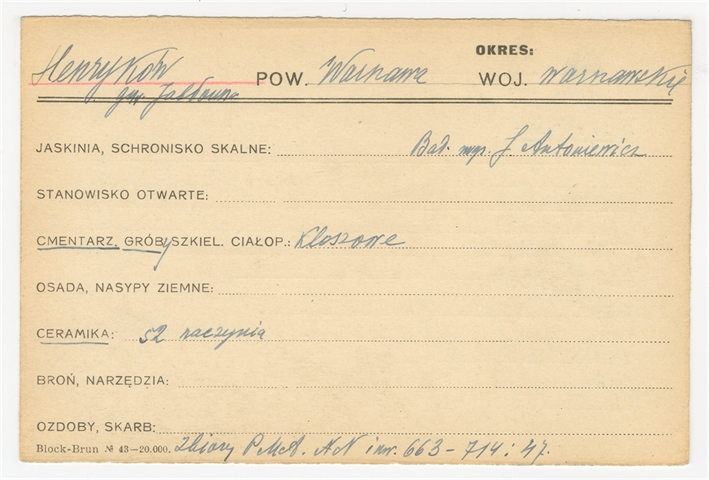 OKRES:
Henryków POW. Warszawa WOJ. warszawskie
gm. Jabłonna
JASKINIA, SCHRONISKO SKALNE: Bad. mgr. J. Antoniewicz
STANOWISKO OTWARTE:
CMENTARZ, GRÓBy SZKIEL. CIAŁOP.: Kloszowe
OSADA, NASYPY ZIEMNE:
CERAMIKA: 52 naczynia
BROŃ, NARZĘDZIA:
OZDOBY, SKARB:
Block-Brun № 43—20.000. Zbiory P.M.A. AN inw. 663 – 714 : 47.